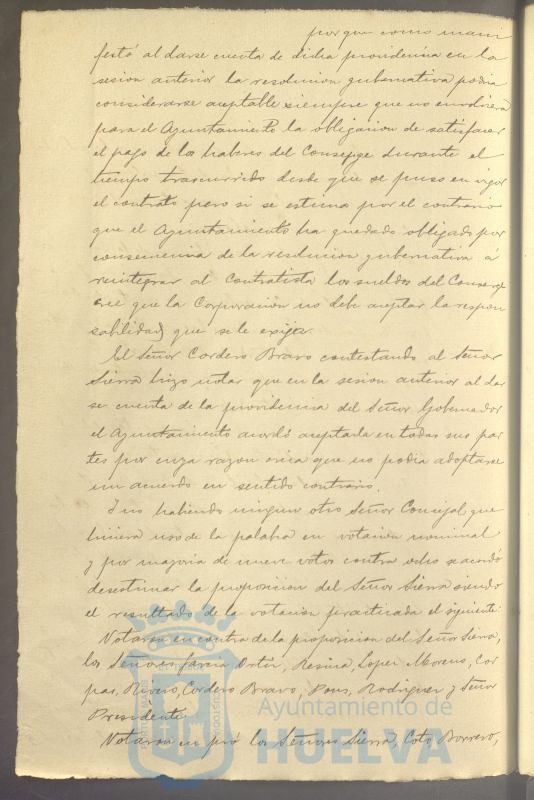 porque como mani
festó al darse cuenta de dicha providencia en la
sesion anterior la resolucion gubernativa podia
considerarse aceptable siempre que no envolviera
para el Ayuntamiento la obligacion de satisfacer
el pago de los haberes del Conserge durante el
tiempo trascurrido desde que se puso en vigor
el contrato pero si se estima por el contrario
que el Ayuntamiento ha quedado obligado por
consecuencia de la resolucion gubernativa á
reintegrar al Contratista los sueldos del Conserge
cree que la Corporacion no debe aceptar la respon
sabilidad que se le exige.
El Señor Cordero Bravo contestando al Señor
Sierra hizo notar que en la sesion anterior al dar
se cuenta de la providencia del Señor Gobernador
el Ayuntamiento acordó aceptarla en todas sus par
tes por cuya razon creia que no podia adoptarse
un acuerdo en sentido contrario.
Y no habiendo ningun otro Señor Concejal que
hiciera uso de la palabra en votacion nominal
y por mayoria de nueve votos contra ocho se acordó
desestimar la proposicion del Señor Sierra siendo
el resultado de la votacion practicada el siguiente:
Votaron en contra de la proposicion del Señor Sierra,
los Señores Garcia Ortiz, Resina, Lopez Moreno, Cor
pas, Rivero, Cordero Bravo, Pons, Rodriguez y Señor
Presidente.
Votaron en pró los Señores Sierra, Coto, Borrero,
Ayuntamiento de
HUELVA